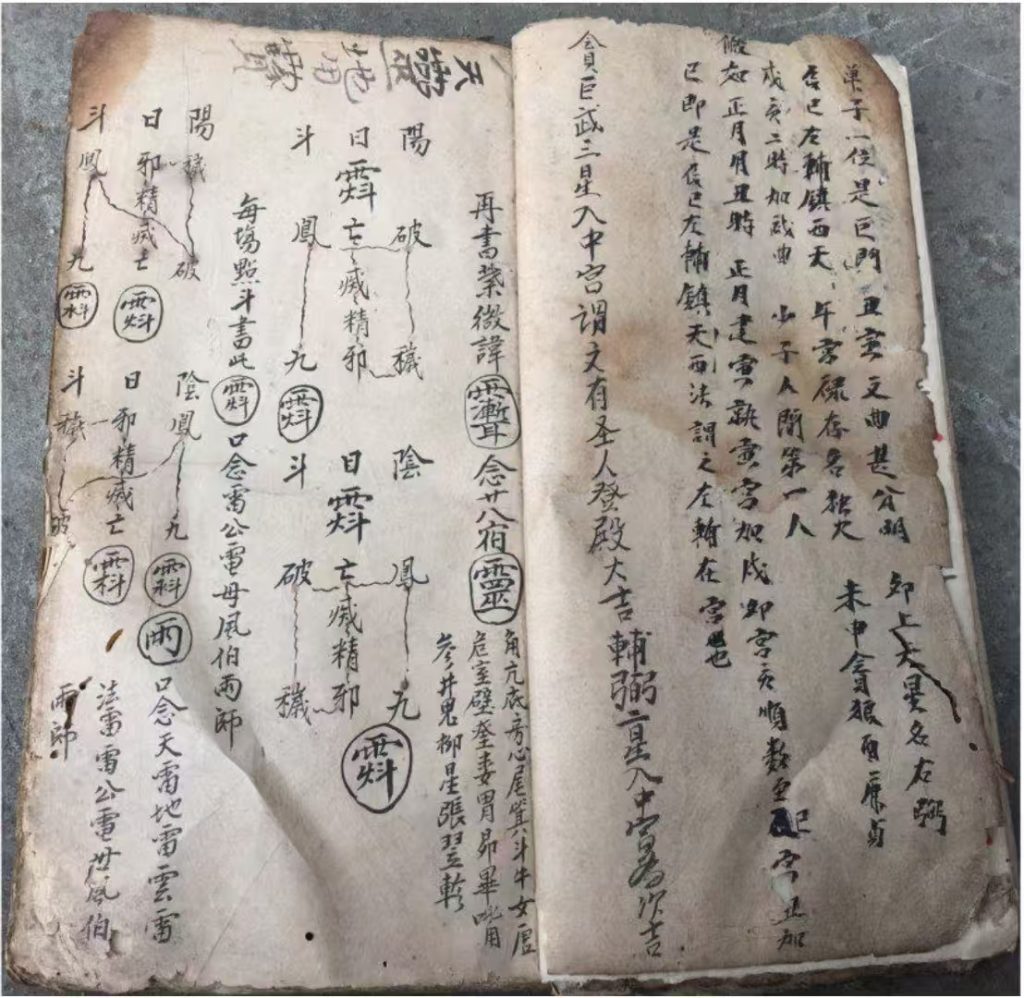 子一位是巨門 丑寅文曲甚分明 卯上天罡名右弼
辰巳左輔鎮西天 午宮祿存名独火 未申貪狼酉廉貞
戌亥二時加武曲 少子人間第一人
假如正月月丑時 正月建寅就寅宮加戌 卯宮亥順數至 巳宮丑加
巳即是辰巳左輔鎮天西法謂之左輔在宮也
貪巨武三星入中宮謂文有圣人登殿大吉 輔弼二星入中宮為次吉
天 地
再書紫微諱 念廿八宿 靈
角亢底房心尾箕斗牛女虛
危室壁奎婁胃昴畢
參井鬼柳星張翌軫
陽 破 穢
日 亡 滅 精 邪
斗 鳳 九
陰 鳳 九
日 亡 滅 精 邪
斗 破 穢
每塲點斗書此 口念雷公電母風伯雨師
陽 穢 破
日 邪 精 滅 亡
斗 鳳 九
陰 鳳 九
日 邪 精 滅 亡
斗 穢 破
雨 口念天雷地雷雲雷
法雷雷公電母風伯
雨師